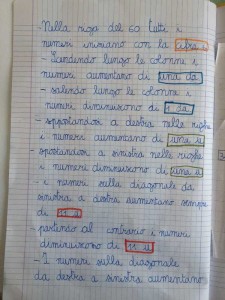 - Nella riga del 60 tutti i
numeri iniziano con la cifra 6
- Scendendo lungo le colonne i
numeri aumentano di una da
- salendo lungo le colonne i
numeri diminuiscono di 1 da
- spostandosi a destra nelle righe
i numeri aumentano di una u
- spostandosi a sinistra nelle righe
i numeri diminuiscono di una u
- i numeri sulla diagonale da
sinistra a destra aumentano sempre
di 11 u
- partendo al contrario i numeri
diminuiscono di 11 u
- I numeri sulla diagonale
da destra a sinistra aumentano